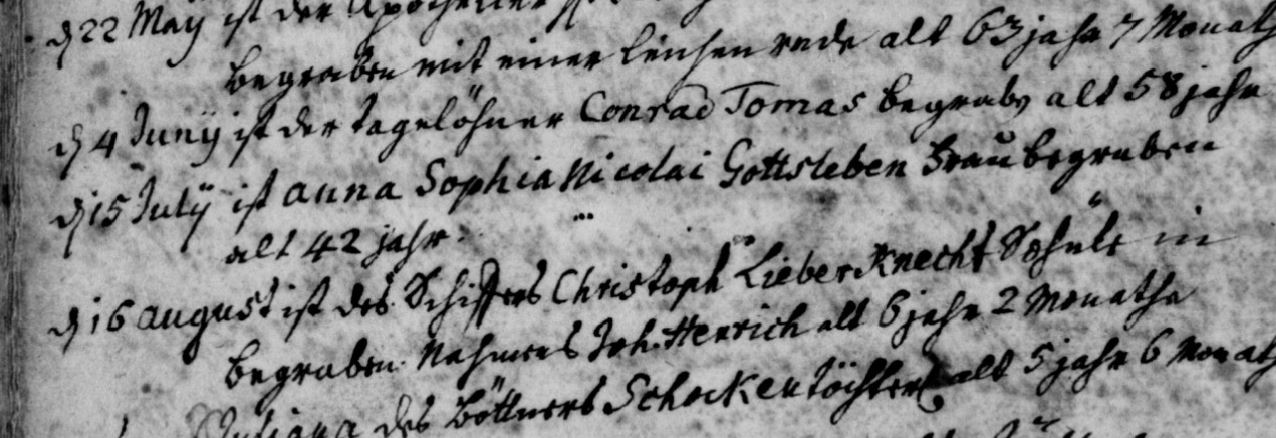 d 22 May ist der Apothecker
begraben mit einer leichen rede alt 63 jahr 7 Monath
d 4 Junij ist der tagelöhner Conrad Tomas begrabn alt 58 jahr
d 15 Julij ist anna Sophia Nicolai Gottsleben Frau begraben
alt 42 jahr.
d 16 august ist des Schiffers Christoph Lieberknecht in
begraben. Nahmens Joh. Henrich alt 6 jahr 2 Monathe
Juliana des Böttners Schocken töchterl alt 5 jahr 6 Monath